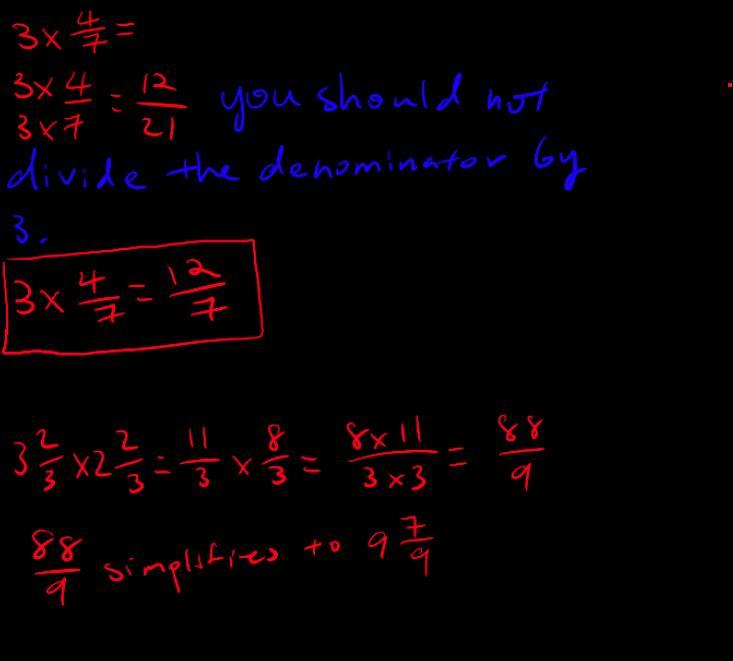 3 × 4/7 =
3 × 4 / 3 × 7 = 12/21 you should not
divide the denominator by
3.
3 × 4/7 = 12/7
3 2/3 × 2 2/3 = 11/3 × 8/3 = 8 × 11 / 3 × 3 = 88/9
88/9 simplifies to 9 7/9